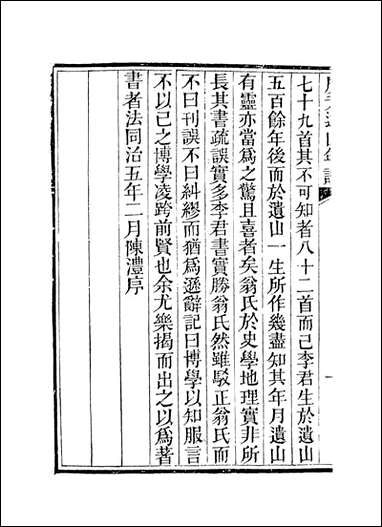 七十九首其不可知者八十二首而已李君生於遺山
五百餘年後而於遺山一生所作幾盡知其年月遺山
有靈亦當爲之驚且喜者矣翁氏於史學地理實非所
長其書疏誤實多李君書實勝翁氏然雖駁正翁氏而
不曰刊誤不曰糾繆而猶爲遜辭記曰博學以知服言
不以己之博學凌跨前賢也余尤樂揭而出之以爲著
書者法同治五年二月陳澧序